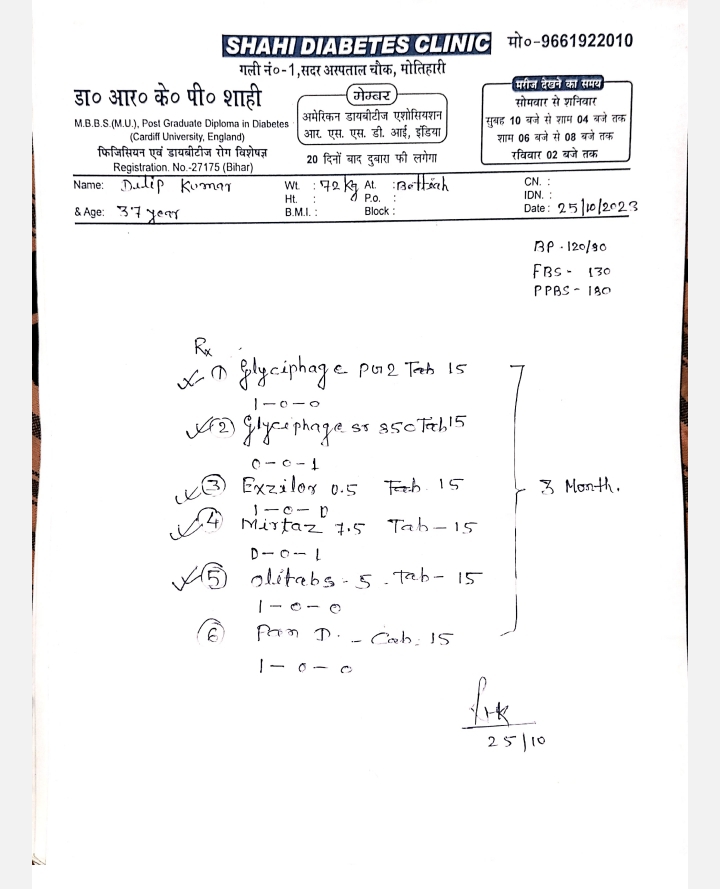 SHAHI DIABETES CLINIC मो०-9661922010
गली नं०-1,सदर अस्पताल चौक, मोतिहारी
डा० आर० के० पी० शाही
M.B.B.S.(M.U.), Post Graduate Diploma in Diabetes
(Cardiff University, England)
फिजिसियन एवं डायबीटीज रोग विशेषज्ञ
Registration. No.-27175 (Bihar)
मेम्बर
अमेरिकन डायबीटीज एशोसियशन
आर. एस. एस. डी. आई, इंडिया
20 दिनों बाद दुबारा फी लगेगा
मरीज देखने का समय
सोमवार से शनिवार
सुबह 10 बजे से शाम 04 बजे तक
शाम 06 बजे से 08 बजे तक
रविवार 02 बजे तक
Name: Dilip Kumar Wt. : 72 kg At. : Bettiah CN. :
Ht. : P.o. : IDN. :
& Age: 37 year B.M.I. : Block : Date : 25/10/2023
BP - 120/80
FBS - 130
PPBS - 180
Rx
1) Glyciphage PG2 Tab 15
1-0-0
(2) Glyciphage SR 850 Tab 15
0-0-1
(3) Exzilor 0.5 Tab. 15
1-0-0
(4) Mirtaz 7.5 Tab - 15
0-0-1
(5) olitabs - 5 . Tab - 15
1-0-0
(6) Pan D. - Cab. 15
1-0-0
3 Month.
25/10